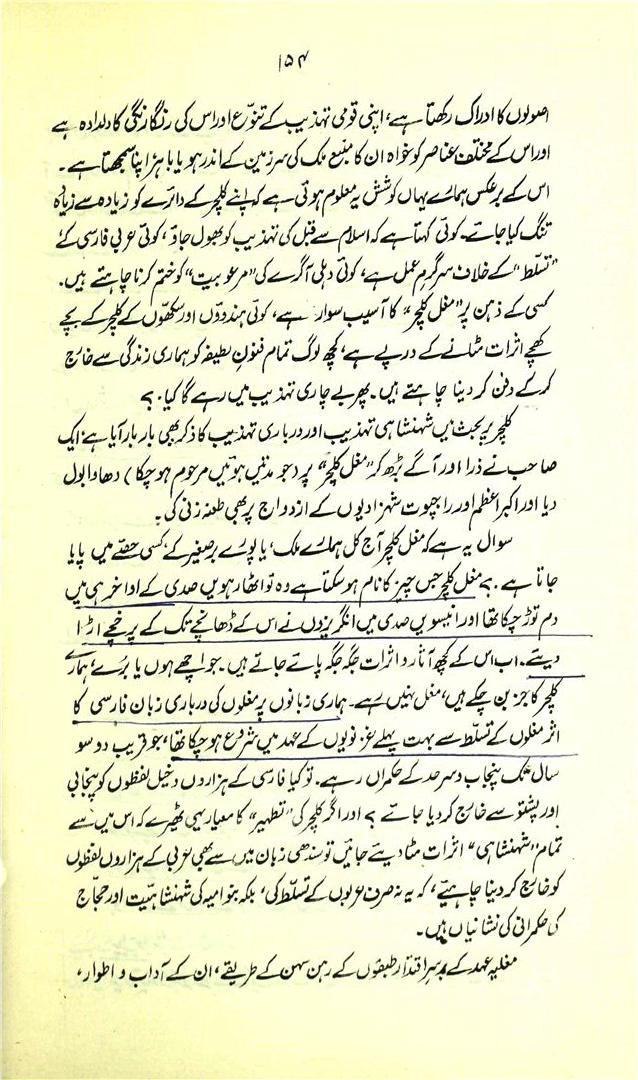 ۱۵۴
اصولوں کا ادراک رکھتا ہے، اپنی قومی تہذیب کے تنوّع اور اس کی رنگا رنگی کا دلدادہ ہے
اور اس کے مختلف عناصر کو خواہ ان کا منبع ملک کی سرزمین کے اندر ہو یا باہر اپنا سمجھتا ہے۔
اس کے برعکس ہمارے یہاں کوشش یہ معلوم ہوتی ہے کہ اپنے کلچر کے دائرے کو زیادہ سے زیادہ
تنگ کیا جائے۔ کوئی کہتا ہے کہ اسلام سے قبل کی تہذیب کو بھول جاؤ، کوئی عربی فارسی کے
"تسلّط" کے خلاف سرگرمِ عمل ہے، کوئی دہلی آگرے کی "مرعوبیت" کو ختم کرنا چاہتے ہیں۔
کسی کے ذہن پر "مغل کلچر" کا آسیب سوار ہے، کوئی ہندوؤں اور سکھّوں کے کلچر کے بچے
کھچے اثرات مٹانے کے درپے ہے، کچھ لوگ تمام فنونِ لطیفہ کو ہماری زندگی سے خارج
کر کے دفن کر دینا چاہتے ہیں۔ پھر بے چاری تہذیب میں رہے گا کیا؟
کلچر پر بحث میں شہنشاہی تہذیب اور درباری تہذیب کا ذکر بھی بار بار آیا ہے؛ ایک
صاحب نے ذرا اور آگے بڑھ کر "مغل کلچر" پر (جو مدتیں ہوئیں مرحوم ہو چکا) دھاوا بول
دیا اور اکبر اعظم اور راجپوت شہزادیوں کے ازدواج پر بھی طعنہ زنی کی۔
سوال یہ ہے کہ مغل کلچر آج کل ہمارے ملک، یا پورے برصغیر کے، کسی حصّے میں پایا
جاتا ہے؟ مغل کلچر جس چیز کا نام ہو سکتا ہے وہ تو اٹھارھویں صدی کے اواخر ہی میں
دم توڑ چکا تھا اور انیسویں صدی میں انگریزوں نے اس کے ڈھانچے تک کے پرخچے اڑا
دیئے۔ اب اس کے کچھ آثار و اثرات جگہ جگہ پائے جاتے ہیں۔ جو اچھے ہوں یا بُرے، ہمارے
کلچر کا جز بن چکے ہیں، مغل نہیں رہے۔ ہماری زبانوں پر مغلوں کی درباری زبان فارسی کا
اثر مغلوں کے تسلّط سے بہت پہلے غزنویوں کے عہد میں شروع ہو چکا تھا، جو قریب دو سو
سال تک پنجاب و سرحد کے حکمراں رہے۔ تو کیا فارسی کے ہزاروں دخیل لفظوں کو پنجابی
اور پشتو سے خارج کر دیا جائے؟ اور اگر کلچر کی "تطہیر" کا معیار یہی ٹھیرے کہ اس میں سے
تمام "شہنشاہی" اثرات مٹا دیئے جائیں تو سندھی زبان میں سے بھی عربی کے ہزاروں لفظوں
کو خارج کر دینا چاہئیے، کہ یہ نہ صرف عربوں کے تسلّط کی، بلکہ بنو امیہ کی شہنشاہیّت اور حجّاج
کی حکمرانی کی نشانیاں ہیں۔
مغلیہ عہد کے برسرِاقتدار طبقوں کے رہن سہن کے طریقے، ان کے آداب و اطوار،